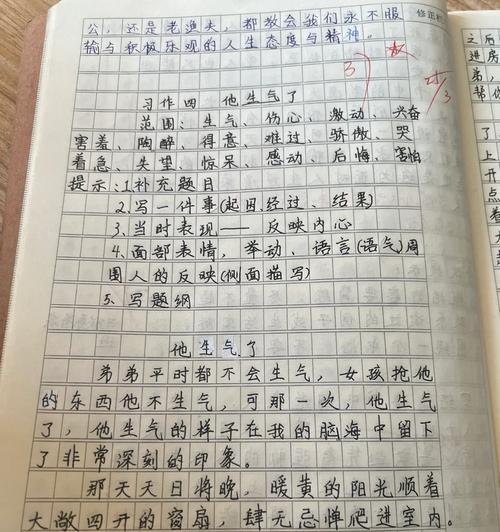 公，还是老渔夫，都教会我们永不服
输与积极乐观的人生态度与精神。
修正栏
3
习作四 他生气了
范围：生气、伤心、激动、兴奋
害羞、陶醉、得意、难过、骄傲、哭
着急、失望、惊呆、感动、后悔、害怕
提示：1.补充题目
2.写一件事(起因、经过、结果)
3.当时表现——反映内心
4.面部表情，举动、语言(语气)周
围人的反映(侧面描写)
5.写题纲
他生气了
弟弟平时都不会生气，女孩抢他
的东西他不生气，可那一次，他生气
了，他生气的样子在我的脑海中留下
了非常深刻的印象。
那天天日将晚，暖黄的阳光顺着
大敞四开的窗扇，肆无忌惮爬进室内。
之后
进房
帮你